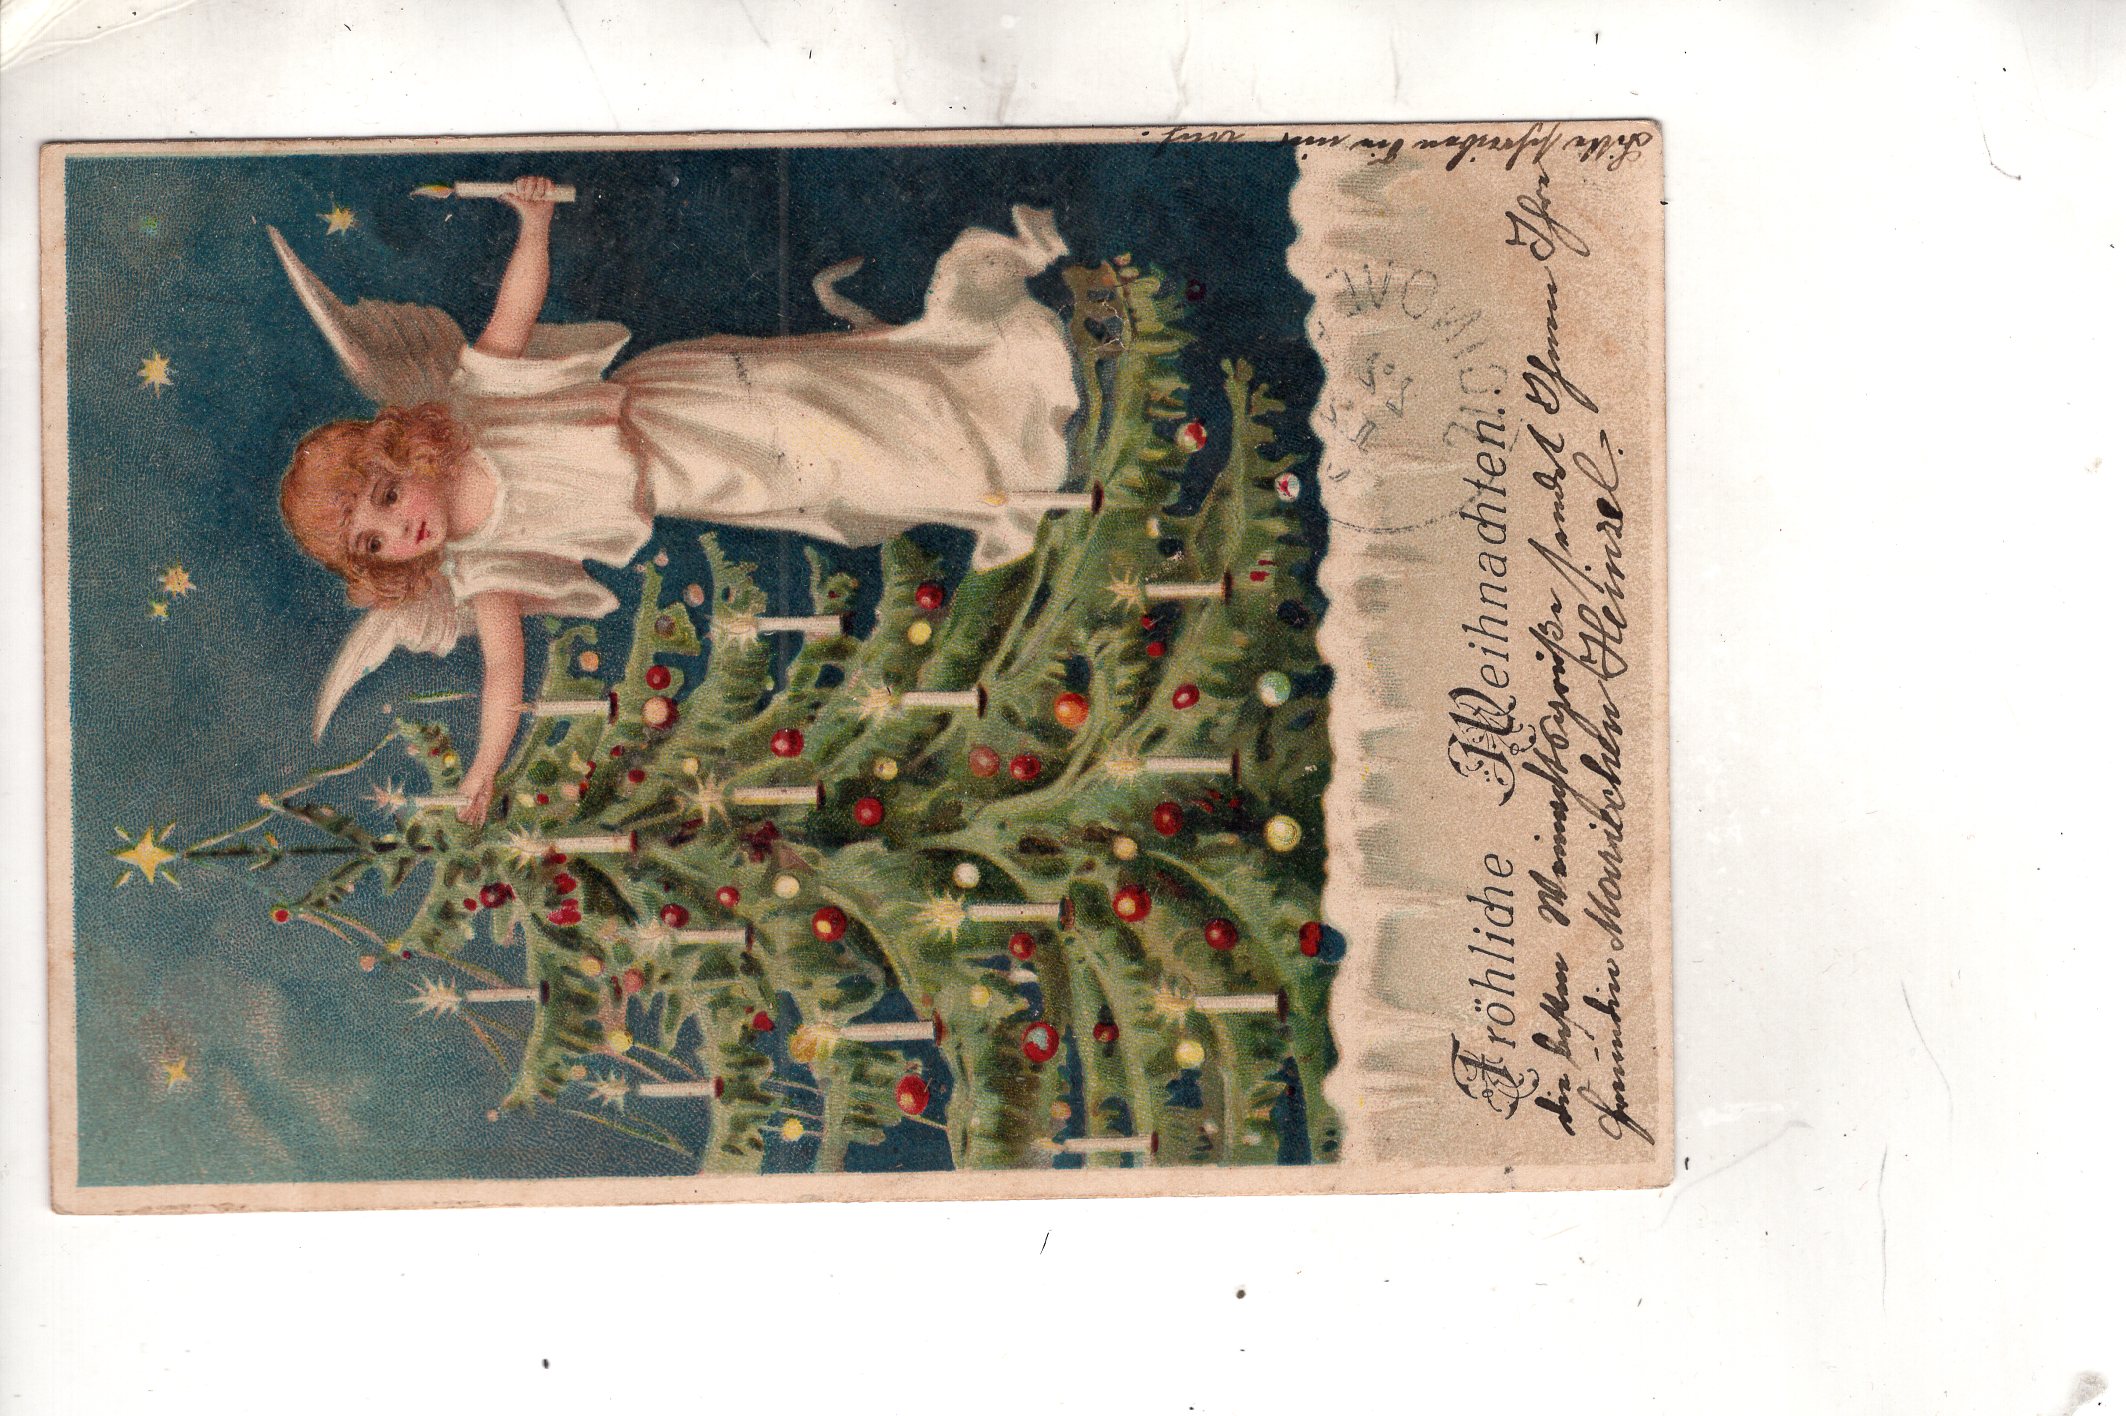 Fröhliche Weihnachten.
die besten Weinachtsgrüße sendet Ihnen Ihre
Freundin Mariechen Heinzel.
Bitte schreiben Sie mir auch.